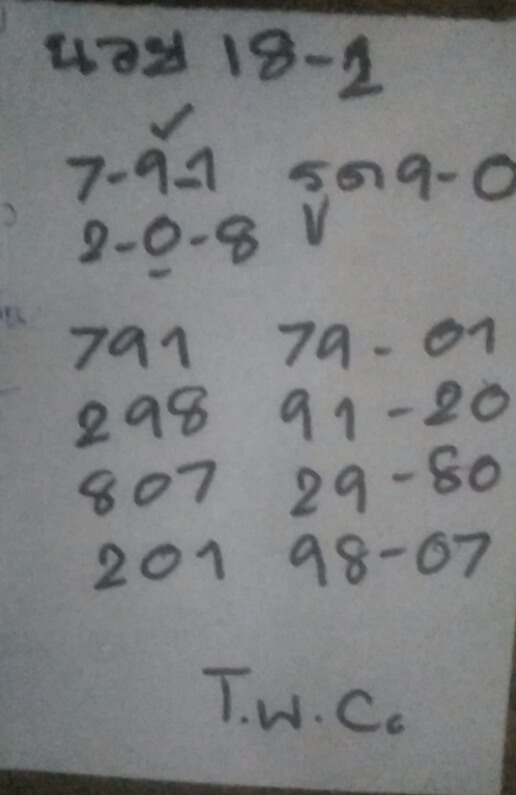 นอย 18-2
7-9-1 รูด 9-0
2-0-8
791 79-01
298 91-20
807 29-80
201 98-07
T.W.C.